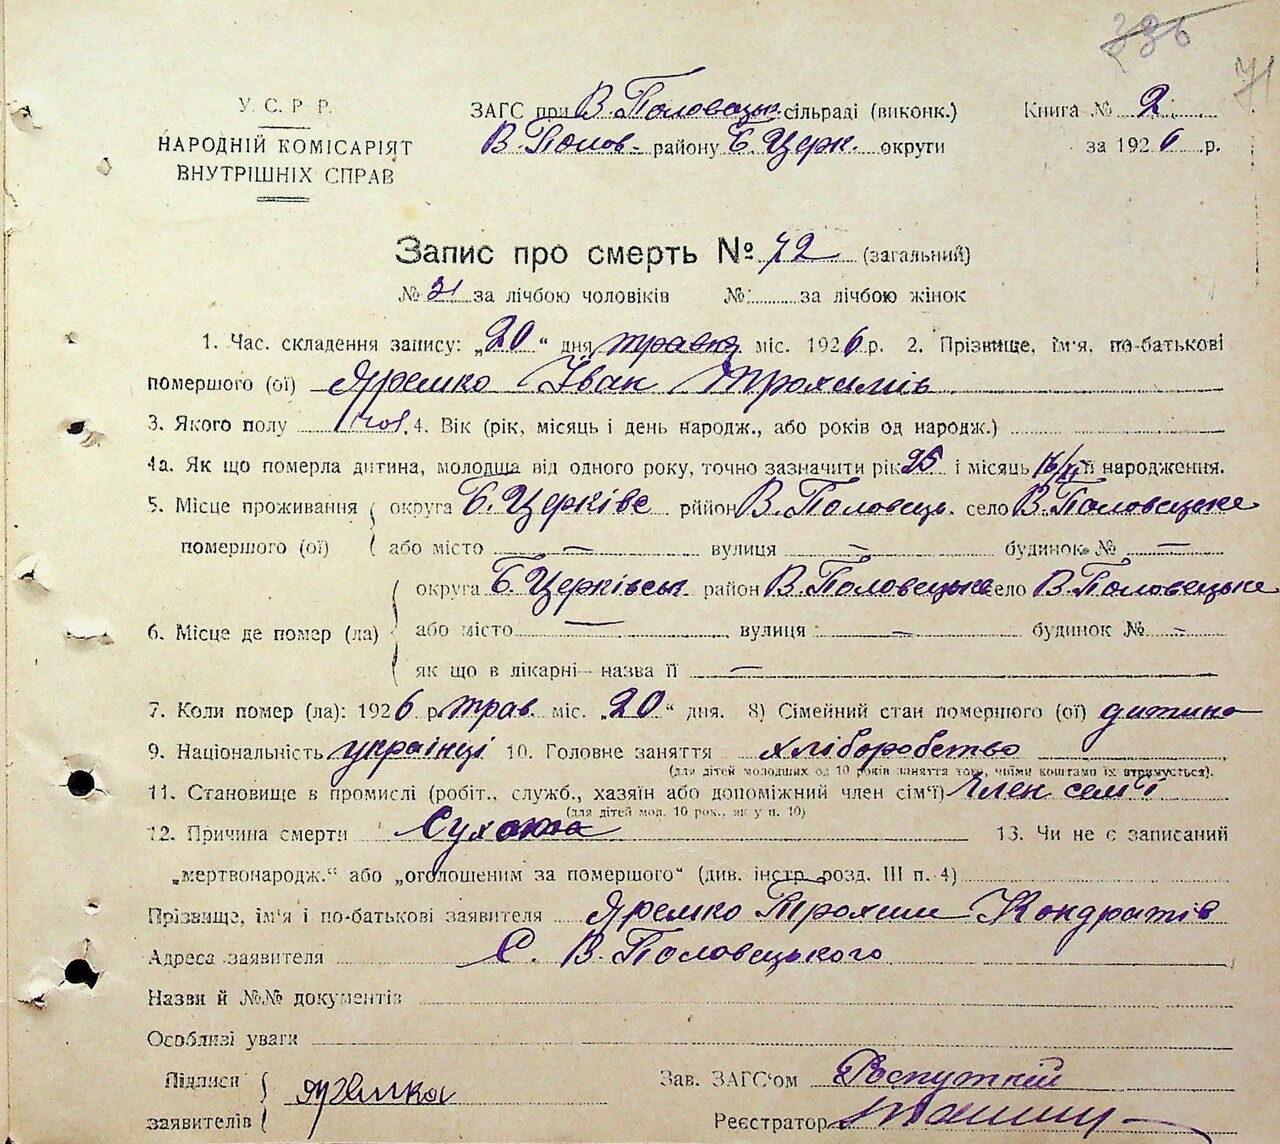 336
71
У. С. Р. Р.
НАРОДНІЙ КОМІСАРІЯТ
ВНУТРІШНІХ СПРАВ
ЗАГС при В. Половецьк. сільраді (виконк.)
В. Полов. району Б. Церк. округи
Книга № 2
за 1926 р.
Запис про смерть № 72 (загальний)
№ 31 за лічбою чоловіків № за лічбою жінок
1. Час. складення запису: „20“ дня травня міс. 1926 р. 2. Прізвище, ім'я, по-батькові
помершого (ої) Яремко Іван Трохимів
3. Якого полу чол. 4. Вік (рік, місяць і день народж., або років од народж.)
4а. Як що померла дитина, молодща від одного року, точно зазначити рік 25 і місяць її народження.
5. Місце проживання помершого (ої) округа Б. Церківс район В. Половець. село В. Половецьке
або місто — вулиця — будинок № —
6. Місце де помер (ла) округа Б. Церківськ район В. Половецьке село В. Половецьке
або місто — вулиця — будинок № —
як що в лікарні—назва її —
7. Коли помер (ла): 1926 р. трав. міс. „20“ дня. 8) Сімейний стан помершого (ої) дитина
9. Національність українці 10. Головне заняття хліборобство
(для дітей молодших од 10 років заняття того, чиїми коштами їх втримується).
11. Становище в промислі (робіт., служб., хазяїн або допоміжний член сім'ї) Член сем'ї
(для дітей мол. 10 рок., як у п. 10)
12. Причина смерти 13. Чи не є записаний
„мертвонародж.“ або „оголошеним за помершого“ (див. інстр. розд. III п. 4)
Прізвище, ім'я і по-батькові заявителя Яремко Трохим Кондратів
Адреса заявителя С. В. Половецького
Назви й №№ документів
Особливі уваги
Підписи заявителів
Зав. ЗАГС'ом Распутній
Реєстратор